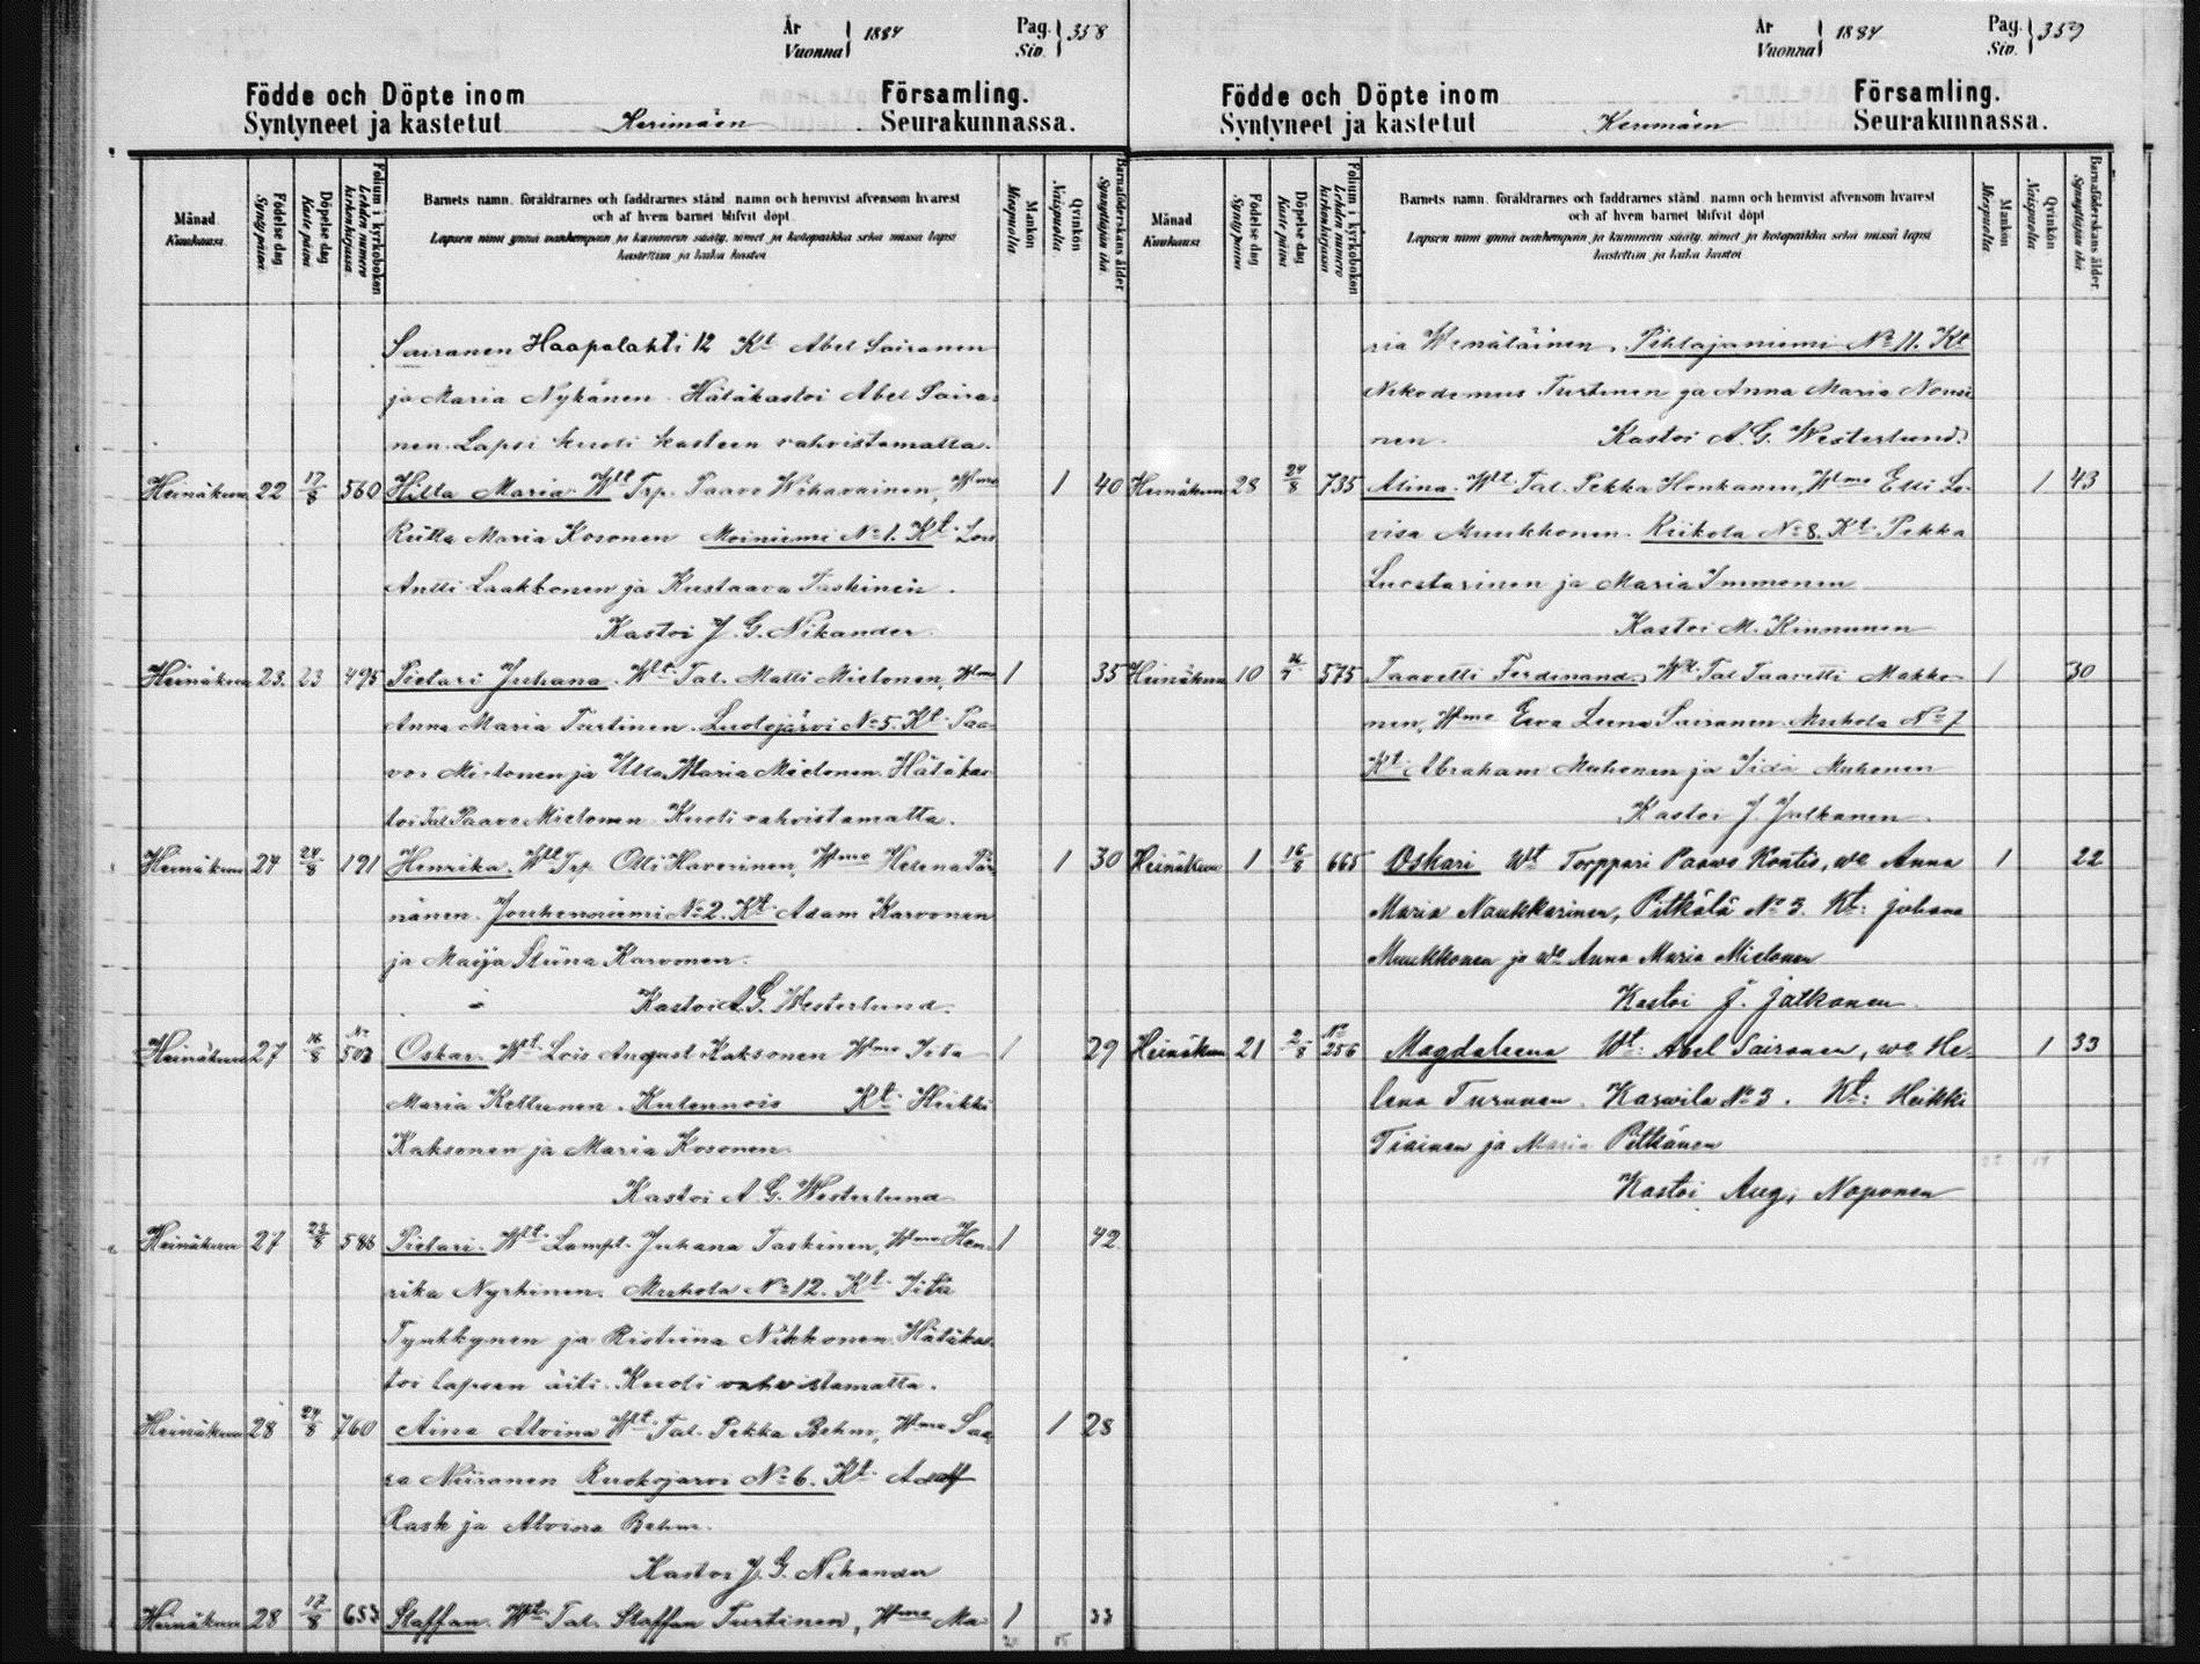 År
Vuonna } 1884
Pag.
Siv. } 358
Födde och Döpte inom Församling.
Syntyneet ja kastetut Kerimäen Seurakunnassa.
Månad
Kuukausi
Födelse dag
Synty päivä
Döpelse dag
Kaste päivä
Folium i kyrkoboken
Lehden numero kirkonkirjassa
Barnets namn, föräldrarnes och faddrarnes stånd, namn och hemvist äfvensom hvarest
och af hvem barnet blifvit döpt.
Lapsen nimi ynnä vanhempain ja kummein sääty, nimet ja kotopaikka sekä missä lapsi
kastettiin ja kuka kastoi
Mankön
Miespuolia
Qvinkön
Naispuolia
Barnaföderskans ålder
Synnyttäjän ikä
Sairanen Haapalahti 12 Kt Abel Sairanen
ja Maria Nykänen. Hätäkastoi Abel Saira-
nen. Lapsi kuoli kasteen vahvistamatta.
Heinäkuu 22 17/8 560 Hilla Maria. Wlt Trp. Paavo Wihavainen, Wmo 1 40
Riitta Maria Kosonen Moiniemi No 1. Kt. Lois
Antti Laakkonen ja Kustaava Taskinen.
Kastoi J. G. Nikander.
Heinäkuu 23. 23 495 Pietari Juhana. Wlt Tal. Matti Mielonen, Wmo 1 35
Anna Maria Turtinen. Luotojärvi No 5. Kt. Paa-
vo Mielonen ja Ulla Maria Mielonen. Hätäkas-
toi Tal. Paavo Mielonen. Kuoli vahvistamatta.
Heinäkuu 24 24/8 191 Henrika. Wlt Trp. Olli Haverinen, Wmo Helena Pär- 1 30
nänen. Jouhenniemi No 2. Kt. Adam Karvonen
ja Maija Stiina Karvonen.
Kastoi A. G. Westerlund.
Heinäkuu 27 16/8 No 503 Oskar. Wlt. Lois August Kaksonen Wmo Iita 1 29
Maria Kettunen. Kulennois Kt. Heikki
Kaksonen ja Maria Kosonen.
Kastoi A. G. Westerlund
Heinäkuu 27 23/8 586 Pietari. Wlt. Lampt. Juhana Taskinen, Wmo Hen- 1 42
rika Nyrhinen. Muhola No 12. Kt. Iita
Tynkkynen ja Ristiina Nikkonen. Hätäkas-
toi lapsen äiti. Kuoli vahvistamatta.
Heinäkuu 28 24/8 760 Aina Alvina Wlt. Tal. Pekka Behm, Wmo Saa- 1 28
ra Niiranen Ruokojärvi No 6. Kt. Adolf
Rask ja Alvina Behm.
Kastoi J. G. Nikander
Heinäkuu 28 17/8 653 Staffan. Wlt. Tal. Staffan Turtinen, Wmo Ma- 1 33
År
Vuonna } 1884
Pag.
Siv. } 359
Födde och Döpte inom Församling.
Syntyneet ja kastetut Kerimäen Seurakunnassa.
Månad
Kuukausi
Födelse dag
Synty päivä
Döpelse dag
Kaste päivä
Folium i kyrkoboken
Lehden numero kirkonkirjassa
Barnets namn, föräldrarnes och faddrarnes stånd, namn och hemvist äfvensom hvarest
och af hvem barnet blifvit döpt
Lapsen nimi ynnä vanhempain ja kummein sääty, nimet ja kotopaikka sekä missä lapsi
kastettiin ja kuka kastoi
Mankön
Miespuolia
Qvinkön
Naispuolia
Barnaföderskans ålder
Synnyttäjän ikä
ria Wenäläinen. Pihlajaniemi No 11. Kt
Nikodemus Turtinen ja Anna Maria Nousi
nen. Kastoi A. G. Westerlund.
Heinäkuu 28 24/8 735 Alina. Wlt. Tal. Pekka Honkanen, Wmo Elli Lo- 1 43
visa Muukkonen. Riikola No 8. Kt. Pekka
Luostarinen ja Maria Immonen
Kastoi M. Kinnunen
Heinäkuu 10 575 Taavetti Ferdinand. Wlt. Tal Taavetti Makko- 1 30
nen, Wmo Eeva Leena Sairanen. Muhola No 7
Kt. Abraham Muhonen ja Iida Muhonen
Kastoi J. Jalkanen.
Heinäkuu 1 16/8 665 Oskari Wt Torppari Paavo Kontio, wo Anna 1 22
Maria Naukkarinen, Pitkälä No 3. Kt: Johana
Muukkonen ja wo Anna Maria Mielonen
Kastoi J. Jalkanen.
Heinäkuu 21 2/8 No 256 Magdaleena Wt. Abel Sairanen, wo He- 1 33
lena Turunen. Karvila No 3. Kt: Heikki
Tiainen ja Maria Pitkänen
Kastoi Aug. Noponen